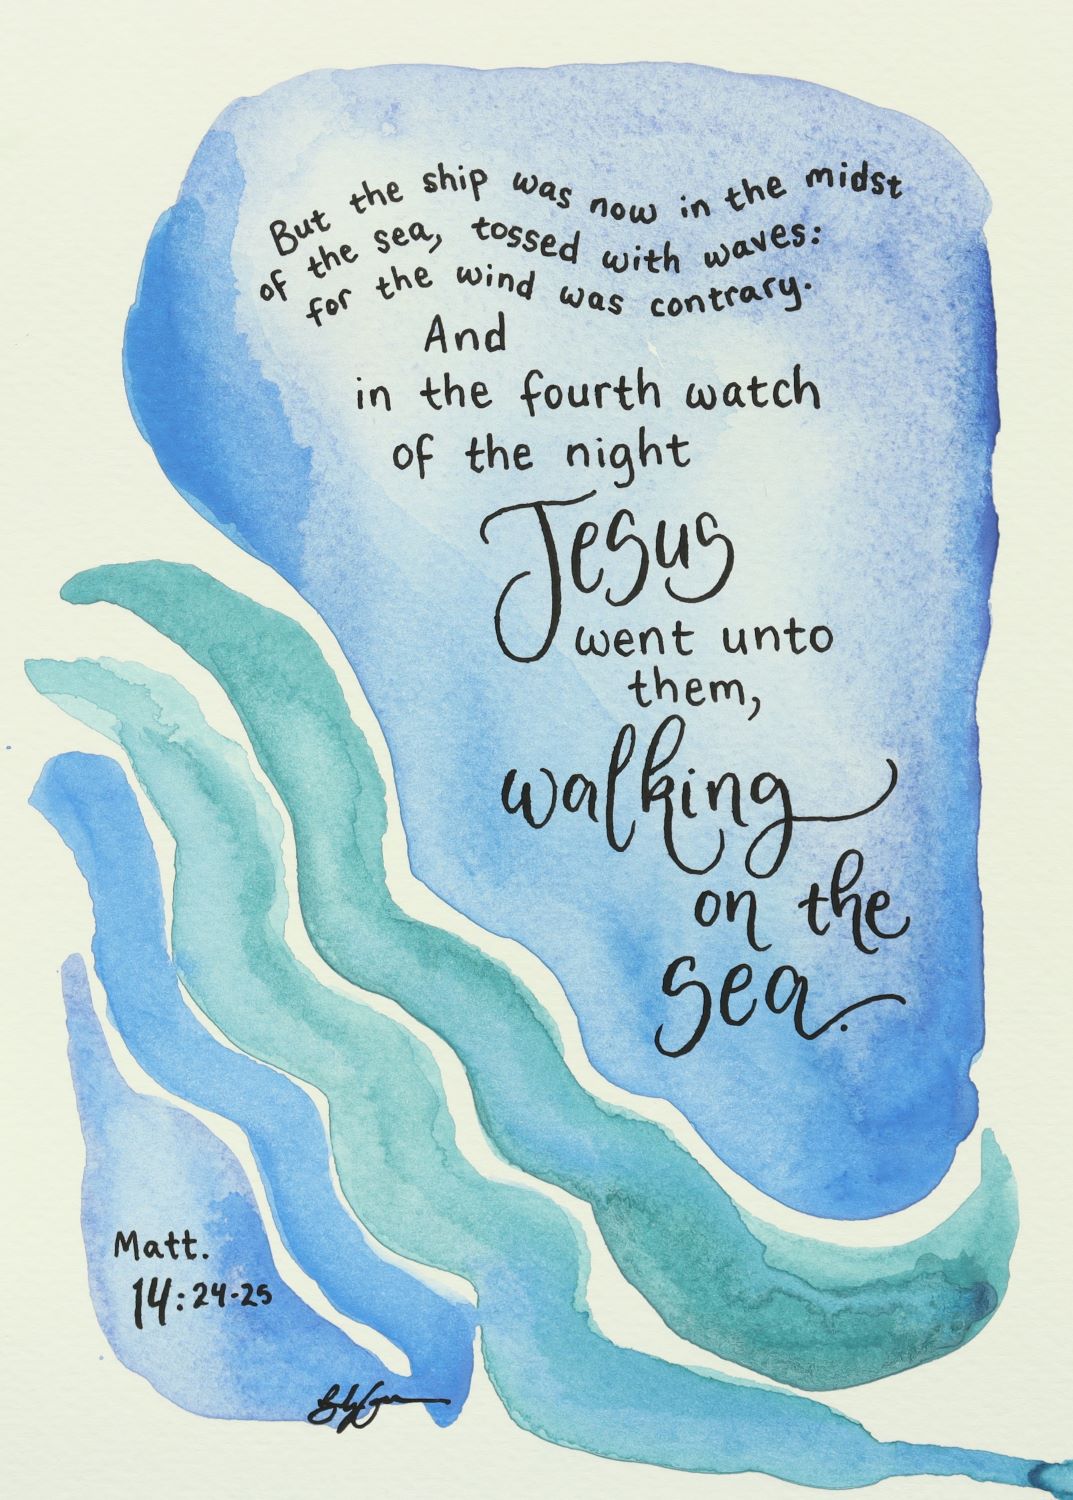 But the ship was now in the midst
of the sea, tossed with waves:
for the wind was contrary.
And
in the fourth watch
of the night
Jesus
went unto
them,
walking
on the
sea.
Matt.
14:24-25